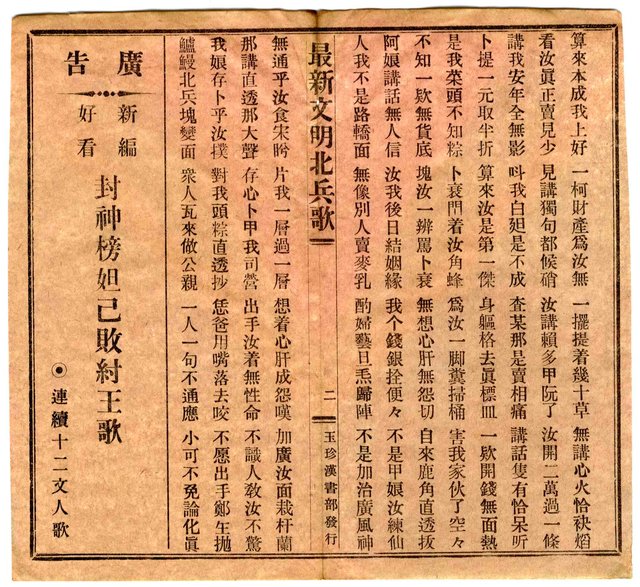 算來本成我上好 一柯財產爲汝無 一擺提着幾十草 無講心火恰袂熖
看汝眞正賣見少 見講獨句都候硝 汝講賴多甲阮了 汝開二萬過一條
講我安年全無影 呌我白是不成 查某那是賣相痛 講話隻有恰呆听
卜提一元取半折 算來汝是第一傑 身軀格去眞標皿 一欵開錢無面熱
是我菜頭不知粽 卜衰門着汝角蜂 爲汝一脚糞掃桶 害我家伙了空々
不知一欵無貨底 塊汝一辨罵卜衰 無想心肝無怨切 自來鹿角直透拔
阿娘講話無人信 汝我後日結姻緣 我个錢銀拴便々 不是甲娘汝練仙
人我不是路轎面 無像別人賣麥乳 酌婦藝旦𤆬歸陣 不是加治廣風神
最新文明北兵歌 二 玉珍漢書部發行
無通乎汝食宋盻 片我一層過一層 想着心肝成怨嘆 加廣汝面栽杆蘭
那講直透那大聲 存心卜甲我司營 出手汝着無性命 不識人敎汝不驚
我娘存卜乎汝撲 對我頭粽直透抄 恁爸用嘴落去咬 不愿出手鄭生拋
鱸鰻北兵塊變面 衆人瓦來做公親 一人一句不通應 小可不免論化眞
廣告
新編
好看
封神榜妲己敗紂王歌
◉連續十二文人歌